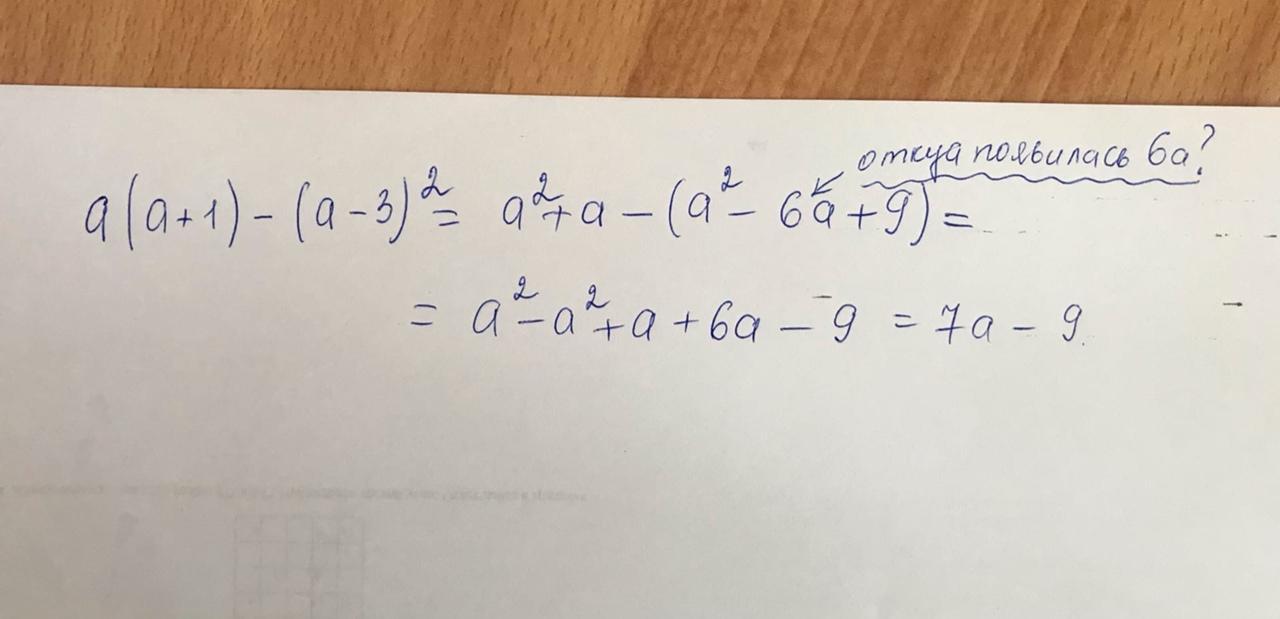 откуа появилась 6а?
a(a+1)-(a-3)²= a²+a-(a²-6a+9)=
= a²-a²+a+6a-9 = 7a-9.